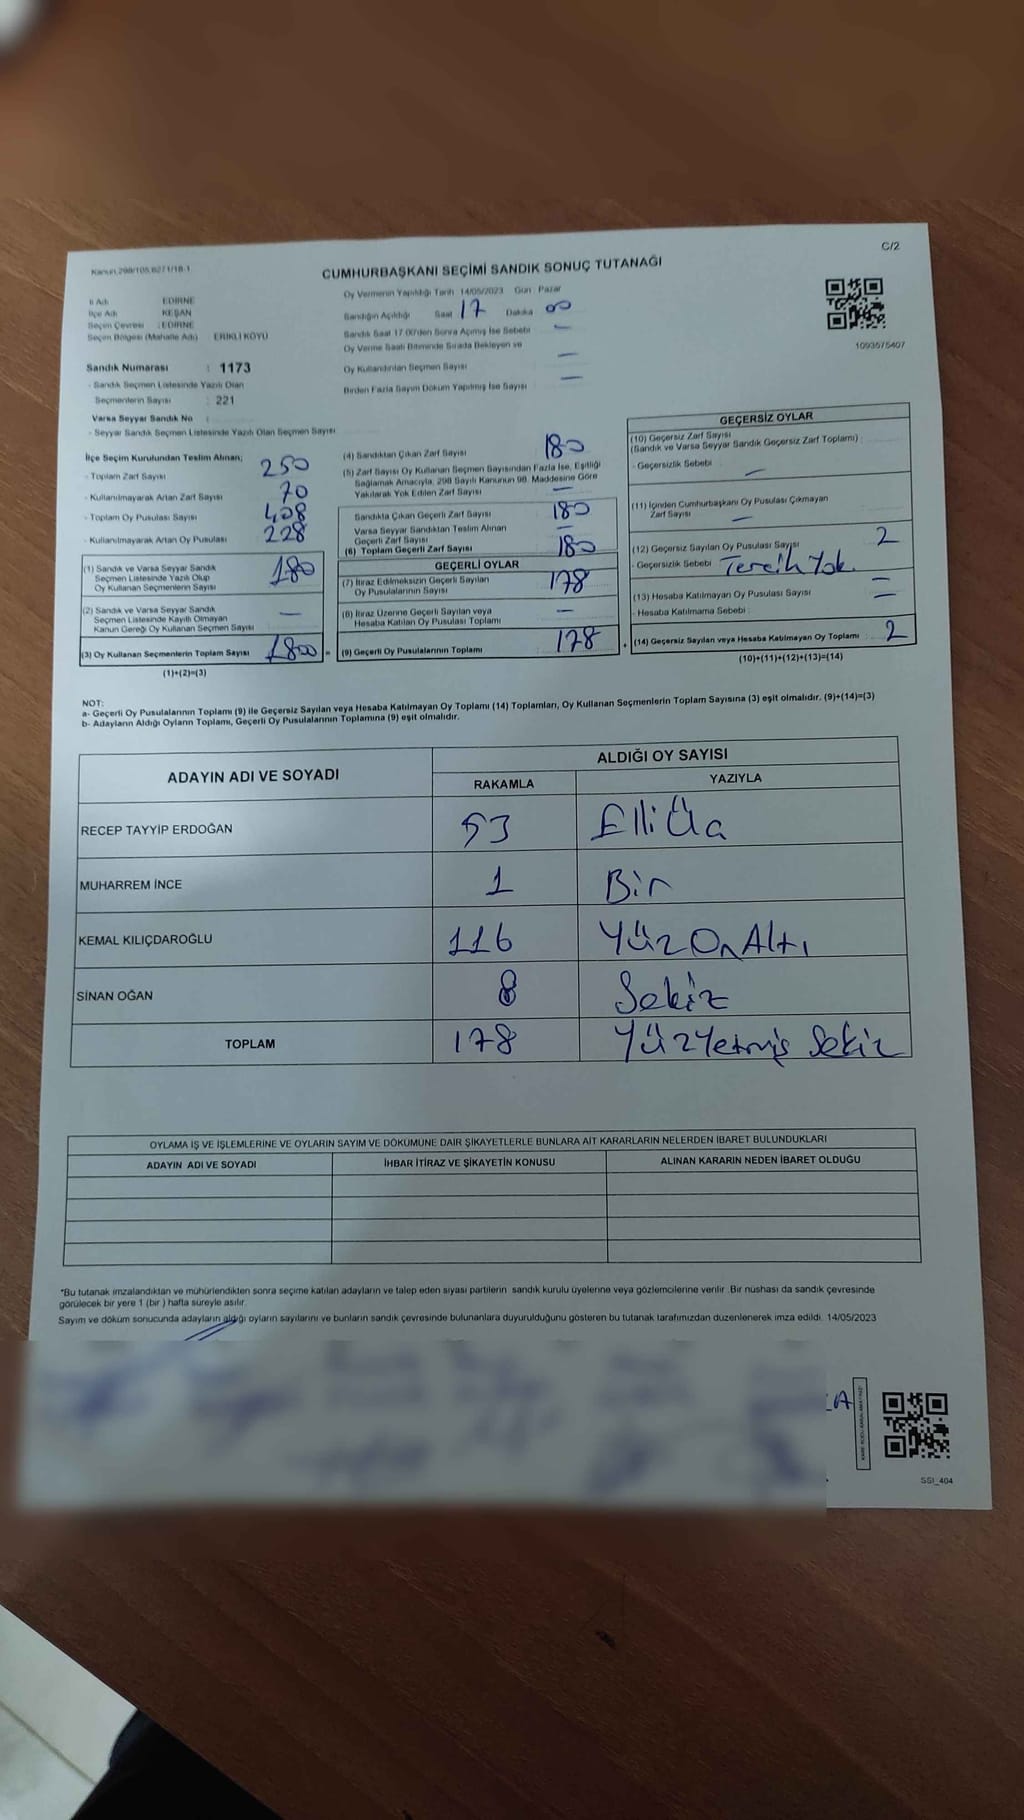 C/2
Kanun:298/105,6271/18-1
CUMHURBAŞKANI SEÇİMİ SANDIK SONUÇ TUTANAĞI
İl Adı : EDİRNE
İlçe Adı : KEŞAN
Seçim Çevresi : EDİRNE
Seçim Bölgesi (Mahalle Adı) : ERİKLİ KÖYÜ
Sandık Numarası : 1173
- Sandık Seçmen Listesinde Yazılı Olan
Seçmenlerin Sayısı : 221
Varsa Seyyar Sandık No :
- Seyyar Sandık Seçmen Listesinde Yazılı Olan Seçmen Sayısı
Oy Vermenin Yapıldığı Tarih : 14/05/2023 Gün : Pazar
Sandığın Açıldığı Saat 17 Dakika 00
Sandık Saat 17.00'den Sonra Açılmış İse Sebebi —
Oy Verme Saati Bitiminde Sırada Bekleyen ve
Oy Kullandırılan Seçmen Sayısı —
Birden Fazla Sayım Döküm Yapılmış İse Sayısı —
1093575407
İlçe Seçim Kurulundan Teslim Alınan;
- Toplam Zarf Sayısı 250
- Kullanılmayarak Artan Zarf Sayısı 70
- Toplam Oy Pusulası Sayısı 408
- Kullanılmayarak Artan Oy Pusulası 228
(1) Sandık ve Varsa Seyyar Sandık
Seçmen Listesinde Yazılı Olup
Oy Kullanan Seçmenlerin Sayısı 180
(2) Sandık ve Varsa Seyyar Sandık
Seçmen Listesinde Kayıtlı Olmayan
Kanun Gereği Oy Kullanan Seçmen Sayısı —
(3) Oy Kullanan Seçmenlerin Toplam Sayısı =
(1)+(2)=(3)
(4) Sandıktan Çıkan Zarf Sayısı 180
(5) Zarf Sayısı Oy Kullanan Seçmen Sayısından Fazla İse, Eşitliği
Sağlamak Amacıyla, 298 Sayılı Kanunun 98. Maddesine Göre
Yakılarak Yok Edilen Zarf Sayısı —
Sandıkta Çıkan Geçerli Zarf Sayısı 180
Varsa Seyyar Sandıktan Teslim Alınan
Geçerli Zarf Sayısı —
(6) Toplam Geçerli Zarf Sayısı 180
GEÇERLİ OYLAR
(7) İtiraz Edilmeksizin Geçerli Sayılan
Oy Pusulalarının Sayısı 178
(8) İtiraz Üzerine Geçerli Sayılan veya
Hesaba Katılan Oy Pusulası Toplamı —
(9) Geçerli Oy Pusulalarının Toplamı 178 +
GEÇERSİZ OYLAR
(10) Geçersiz Zarf Sayısı
(Sandık ve Varsa Seyyar Sandık Geçersiz Zarf Toplamı)
- Geçersizlik Sebebi : —
(11) İçinden Cumhurbaşkanı Oy Pusulası Çıkmayan
Zarf Sayısı —
(12) Geçersiz Sayılan Oy Pusulası Sayısı 2
- Geçersizlik Sebebi : Tercih Yok.
(13) Hesaba Katılmayan Oy Pusulası Sayısı —
- Hesaba Katılmama Sebebi : —
(14) Geçersiz Sayılan veya Hesaba Katılmayan Oy Toplamı : 2
(10)+(11)+(12)+(13)=(14)
NOT:
a- Geçerli Oy Pusulalarının Toplamı (9) ile Geçersiz Sayılan veya Hesaba Katılmayan Oy Toplamı (14) Toplamları, Oy Kullanan Seçmenlerin Toplam Sayısına (3) eşit olmalıdır. (9)+(14)=(3)
b- Adayların Aldığı Oyların Toplamı, Geçerli Oy Pusulalarının Toplamına (9) eşit olmalıdır.
ADAYIN ADI VE SOYADI ALDIĞI OY SAYISI
RAKAMLA YAZIYLA
RECEP TAYYİP ERDOĞAN 53 Elli Üç
MUHARREM İNCE 1 Bir
KEMAL KILIÇDAROĞLU 116 Yüz On Altı
SİNAN OĞAN 8 Sekiz
TOPLAM 178 Yüz Yetmiş Sekiz
OYLAMA İŞ VE İŞLEMLERİNE VE OYLARIN SAYIM VE DÖKÜMÜNE DAİR ŞİKAYETLERLE BUNLARA AİT KARARLARIN NELERDEN İBARET BULUNDUKLARI
ADAYIN ADI VE SOYADI İHBAR İTİRAZ VE ŞİKAYETİN KONUSU ALINAN KARARIN NEDEN İBARET OLDUĞU
*Bu tutanak imzalandıktan ve mühürlendikten sonra seçime katılan adayların ve talep eden siyasi partilerin sandık kurulu üyelerine veya gözlemcilerine verilir. Bir nüshası da sandık çevresinde
görülecek bir yere 1 (bir) hafta süreyle asılır.
Sayım ve döküm sonucunda adayların aldığı oyların sayılarını ve bunların sandık çevresinde bulunanlara duyurulduğunu gösteren bu tutanak tarafımızdan düzenlenerek imza edildi. 14/05/2023
SSI_404